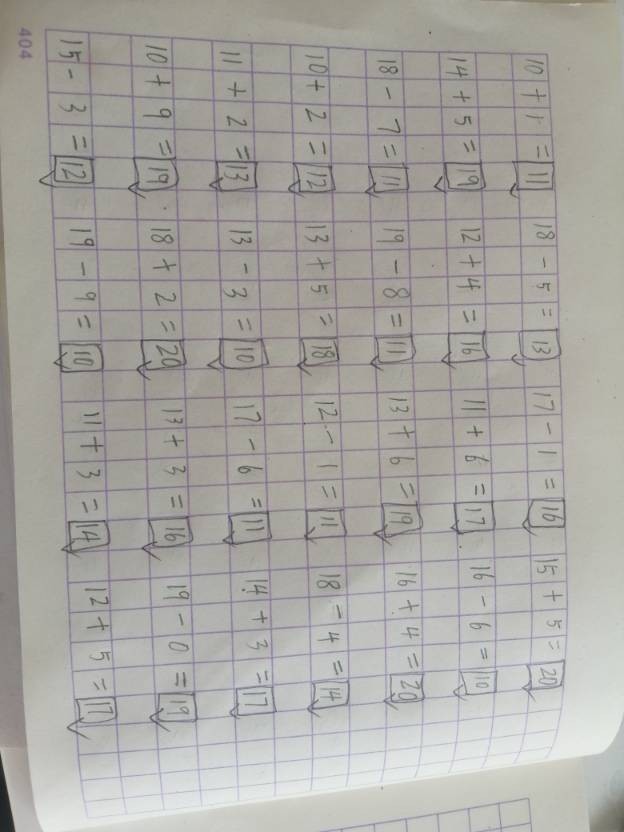 10 + 1 = 11 18 - 5 = 13 17 - 1 = 16 15 + 5 = 20
14 + 5 = 19 12 + 4 = 16 11 + 6 = 17 16 - 6 = 10
18 - 7 = 11 19 - 8 = 11 13 + 6 = 19 16 + 4 = 20
10 + 2 = 12 13 + 5 = 18 12 - 1 = 11 18 - 4 = 14
11 + 2 = 13 13 - 3 = 10 17 - 6 = 11 14 + 3 = 17
10 + 9 = 19 18 + 2 = 20 13 + 3 = 16 19 - 0 = 19
15 - 3 = 12 19 - 9 = 10 11 + 3 = 14 12 + 5 = 17
404